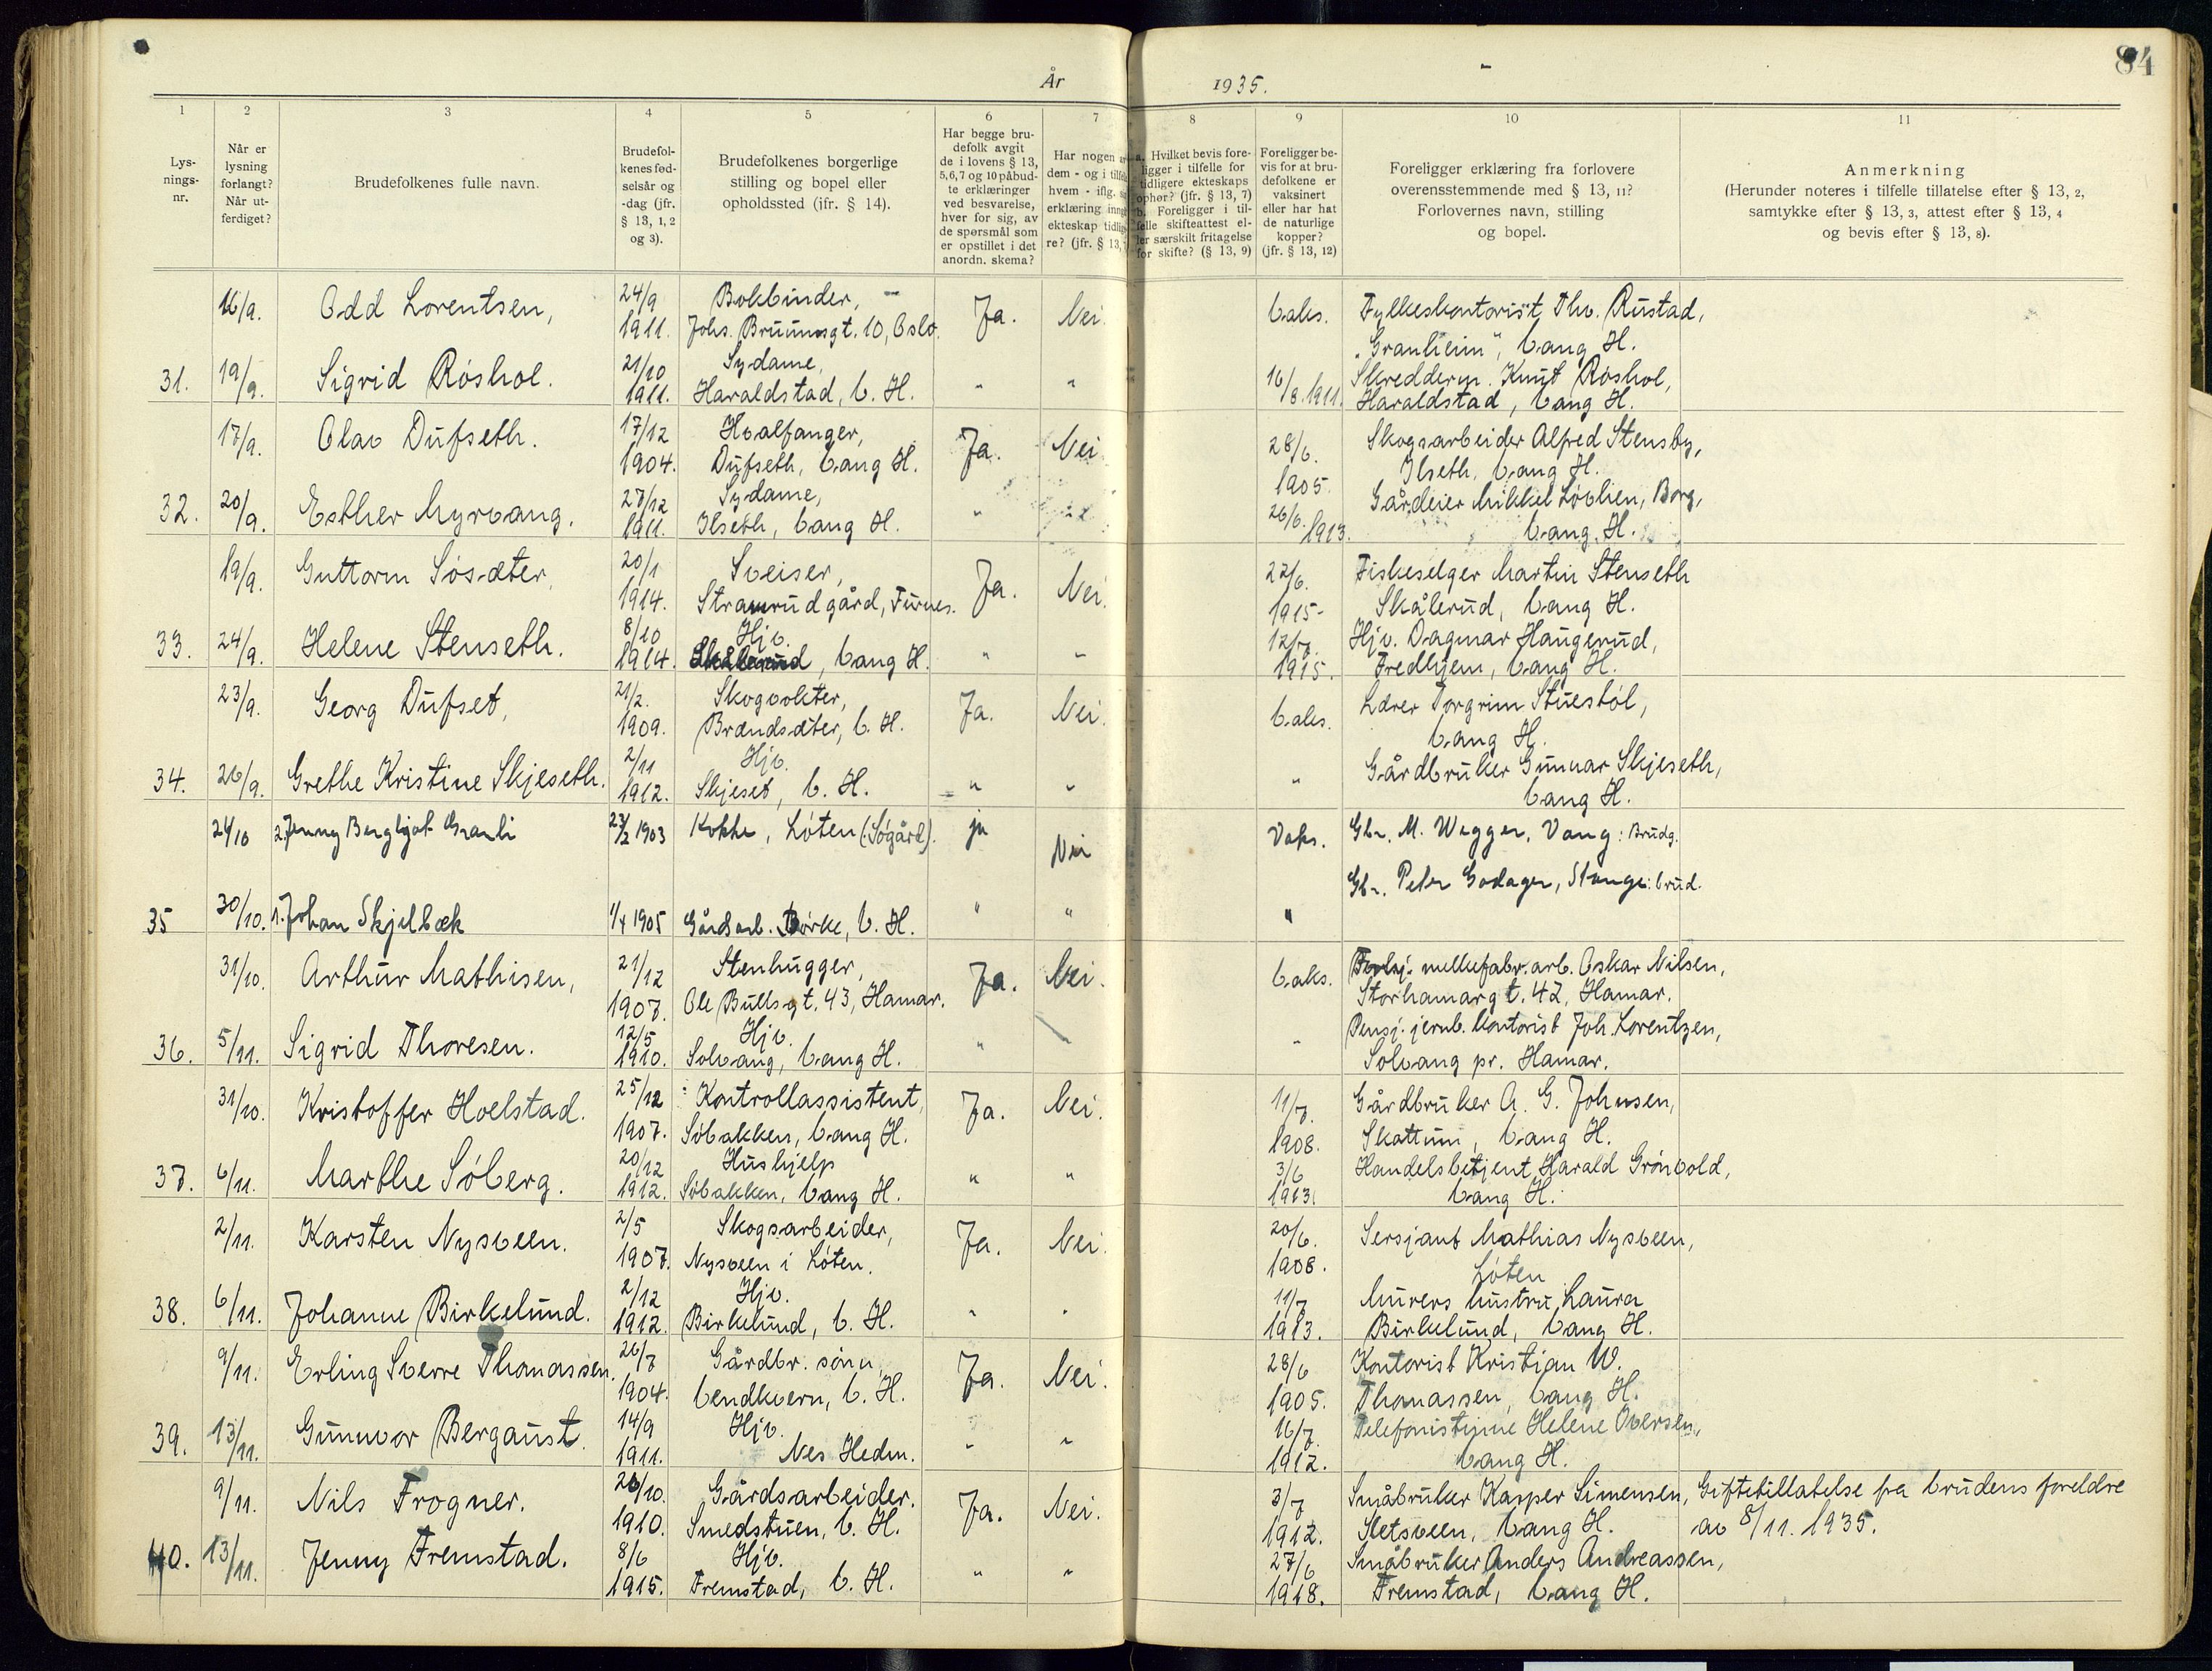 84
År 1935.
1 2 3 4 5 6 7 8 9 10 11
Lysnings-nr.
Når er lysning forlangt? Når utferdiget?
Brudefolkenes fulle navn.
Brudefolkenes fødselsår og -dag (jfr. § 13, 1, 2 og 3).
Brudefolkenes borgerlige stilling og bopel eller opholdssted (jfr. § 14).
Har begge brudefolk avgit de i lovens § 13, 5,6,7 og 10 påbudte erklæringer ved besvarelse, hver for sig, av de spørsmål som er opstillet i det anordn. skema?
Har nogen av dem - og i tilfelle hvem - iflg. erklæring inngått ekteskap tidligere? (jfr. § 13,
a. Hvilket bevis foreligger i tilfelle for tidligere ekteskaps ophør? (jfr. § 13, 7) b. Foreligger i tilfelle skifteattest eller særskilt fritagelse for skifte? (§ 13, 9)
Foreligger bevis for at brudefolkene er vaksinert eller har hat de naturlige kopper? (jfr. § 13, 12)
Foreligger erklæring fra forlovere overensstemmende med § 13, 11? Forlovernes navn, stilling og bopel.
Anmerkning (Herunder noteres i tilfelle tillatelse efter § 13, 2, samtykke efter § 13, 3, attest efter § 13, 4 og bevis efter § 13, 8).
16/9. Odd Lorentsen, 24/9 1911. Bokbinder, Johs. Bruunsgt. 10, Oslo. Ja. Nei. Vaks. Fylkeskontorist Thv. Rustad, "Granheim", Vang H.
31. 19/9. Sigrid Røshol. 21/10 1911. Sydame, Haraldstad, V. H. " " 16/8. 1911. Skredderm. Knut Røshol, Haraldstad, Vang H.
17/9. Olav Dufseth. 17/12 1904. Hvalfanger, Dufseth, Vang H. Ja. Nei 28/6. 1905. Skogsarbeider Alfred Stensby, Ilseth, Vang H.
32. 20/9. Esther Myrvang. 27/12 1911. Sydame, Ilseth, Vang H. " " 26/6. 1913. Gårdeier Mikkel Løvlien, Borg, Vang H.
19/9. Guttorm Søsæter, 20/1 1914. Sveiser, Stramrud gård, Furnes. Ja. Nei. 22/6. 1915- Fiskeselger Martin Stenseth Skålerud, Vang H.
33. 24/9. Helene Stenseth. 8/10 1914. Hjv. Skålerud, Vang H. " " 12/7. 1915. Hjv. Dagmar Haugerud, Fredhjem, Vang H.
23/9. Georg Dufset, 21/2. 1909. Skogvokter, Brændsæter, V. H. Ja. Nei. Vaks. Lærer Torgrim Stuestøl, Vang H.
34. 26/9. Grethe Kristine Skjeseth. 2/11 1912. Hjv. Skjeset, V. H. " " " Gårdbruker Gunnar Skjeseth, Vang H.
24/10 2. Jenny Bergljot Granli 23/2 1903 Kokke, Løten (:Søgård). ja Nei Vaks. Gbr. M. Wegger, Vang: Brudg.
Gbr. Peter Godager, Stange: brud.
35 30/10. 1. Johan Skjelbæk 1/4 1905 Gårdsarb. Børke, V. H. " " "
31/10. Arthur Mathisen, 21/12 1907. Stenhugger, Ole Bullsgt. 43, Hamar. Ja. Nei. Vaks. melkefabr. arb. Oskar Nilsen, Storhamargt. 42, Hamar.
36. 5/11. Sigrid Thoresen. 12/5 1910. Hjv. Solvang, Vang H. " " Pensj. jernb. kontorist Joh. Lorentzen, Solvang pr. Hamar.
31/10. Kristoffer Hoelstad. 25/12 1907. Kontrollassistent, Søbakken, Vang H. Ja. Nei. 11/7. 1908. Gårdbruker A. G. Johnsen, Skattum, Vang H.
37. 6/11. Marthe Søberg. 20/12 1912. Hushjelp Søbakken, Vang H. " " 3/6 1913. Handelsbetjent Harald Grønvold, Vang H.
2/11. Karsten Nysveen. 2/5 1907. Skogsarbeider, Nysveen i Løten. Ja. Nei. 20/6. 1908. Sersjant Mathias Nysveen, Løten
38. 6/11. Johanne Birkelund. 2/12 1912. Hjv. Birkelund, V. H. " " 11/7 1913. Murers hustru Laura Birkelund, Vang H.
9/11. Erling Sverre Thomassen. 26/7 1904. Gårdbr. sønn, Vendkvern, V. H. Ja. Nei. 28/6 1905. Kontorist Kristian W. Thomassen, Vang H.
39. 13/11. Gunnvor Bergaust. 14/9 1911. Hjv. Nes Hedm. " " 16/7 1912. Telefonistinne Helene Oversen, Vang H.
9/11. Nils Frogner. 26/10. 1910. Gårdsarbeider. Smedstuen, V. H. Ja. Nei. 3/7 1912. Småbruker Kasper Simensen, Sletsveen, Vang H. Giftetillatelse fra brudens foreldre av 8/11. 1935.
40. 13/11. Jenny Fremstad. 8/6 1915. Hjv. Fremstad, V. H. " " 27/6 1918. Småbruker Anders Andreassen, Fremstad, Vang H.